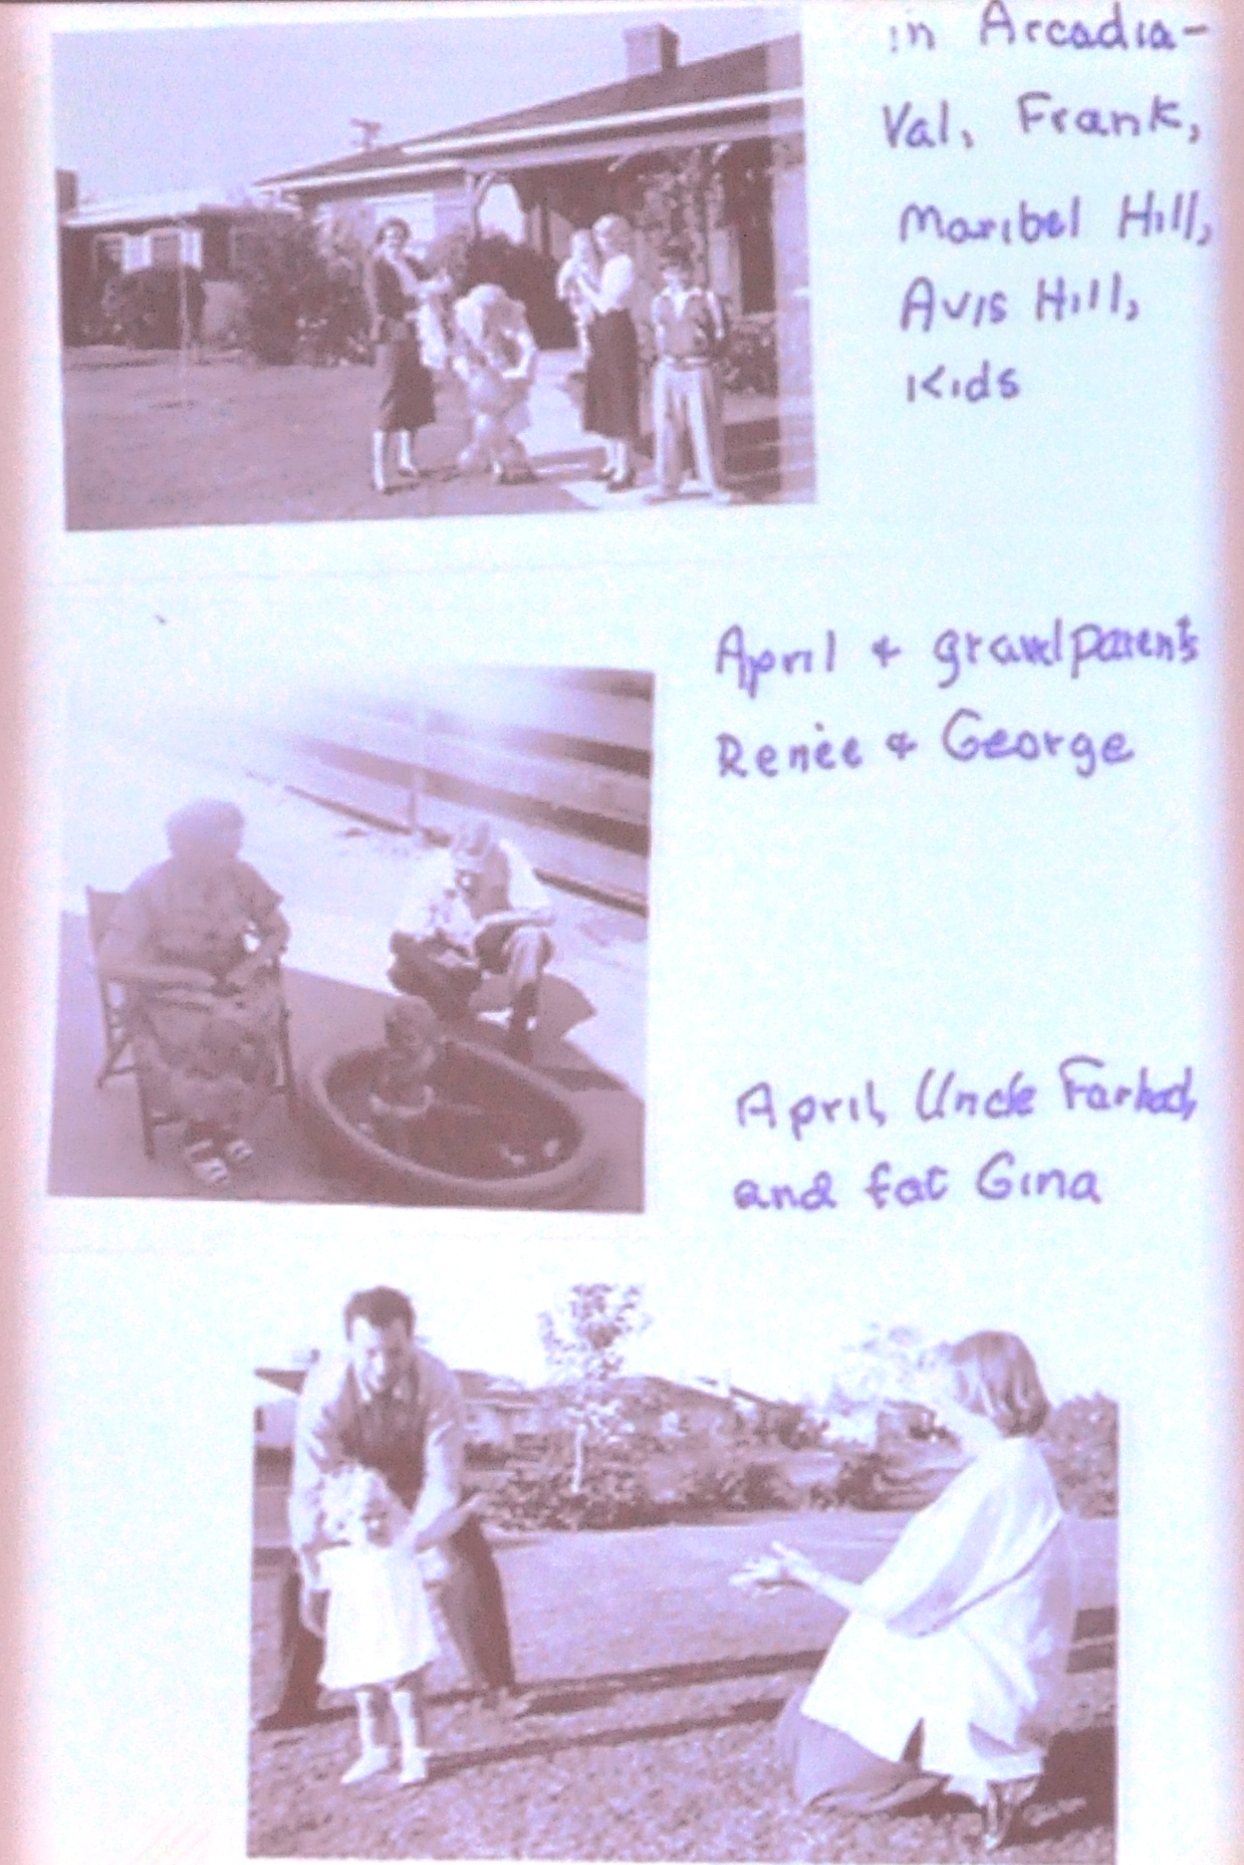 in Arcadia-
Val, Frank,
Maribel Hill,
Avis Hill,
Kids
April & grandparents
Renée & George
April, Uncle Farhad,
and fat Gina